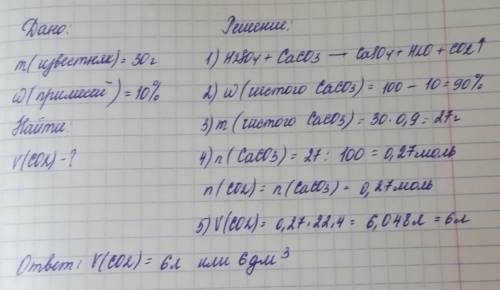 Дано:
m(известняк) = 30г
ω(примесей) = 10%
Найти:
V(CO2) - ?
Решение:
1) H2SO4 + CaCO3 — CaSO4 + H2O + CO2↑
2) ω(чистого CaCO3) = 100 - 10 = 90%
3) m(чистого CaCO3) = 30 · 0,9 = 27г
4) n(CaCO3) = 27 : 100 = 0,27моль
n(CO2) = n(CaCO3) = 0,27моль
5) V(CO2) = 0,27 · 22,4 = 6,048л = 6л
Ответ: V(CO2) = 6л или 6дм³